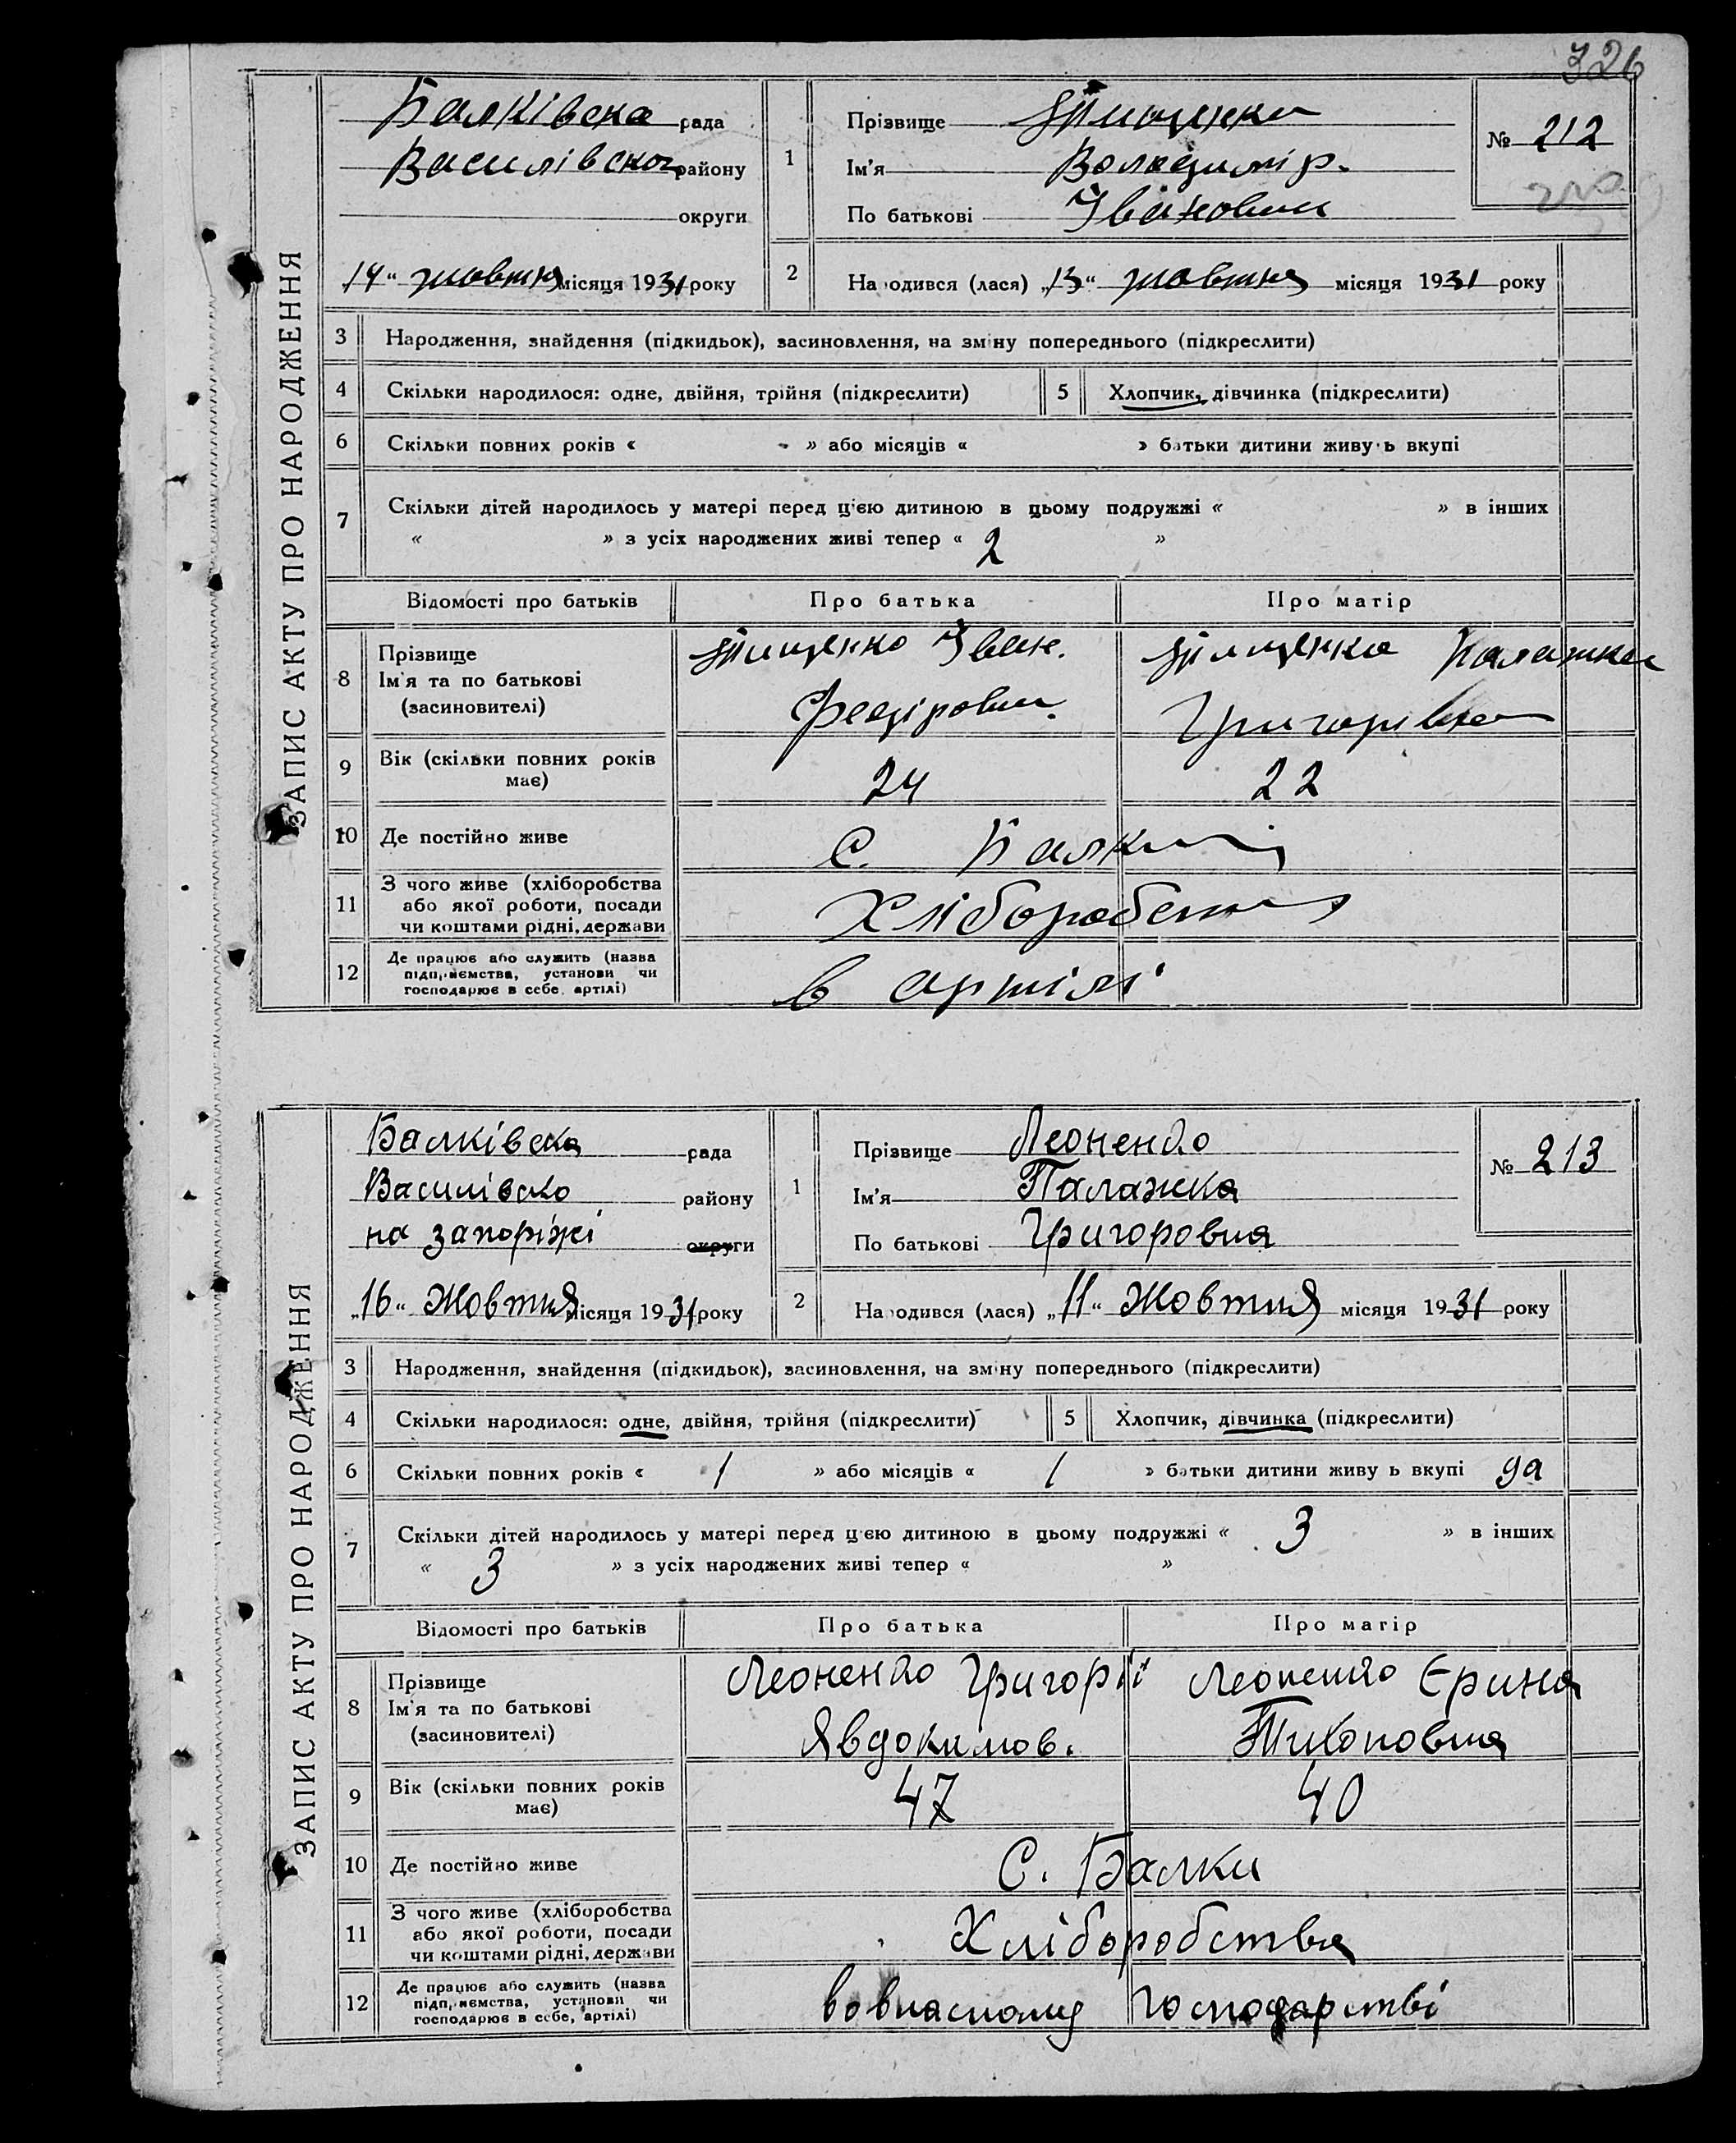 326
ЗАПИС АКТУ ПРО НАРОДЖЕННЯ
Балківська рада
Василівског району
округи
„14“ жовтня місяця 1931 року
1
Прізвище
Ім'я Володимір.
По батькові Іванович
№ 212
2
Народився (лася) „13“ жовтня місяця 1931 року
3 Народження, знайдення (підкидьок), засиновлення, на зміну попереднього (підкреслити)
4 Скільки народилося: одне, двійня, трійня (підкреслити)
5 Хлопчик, дівчинка (підкреслити)
6 Скільки повних років « - » або місяців « » батьки дитини живуть вкупі
7 Скільки дітей народилось у матері перед цією дитиною в цьому подружжі « » в інших
« » з усіх народжених живі тепер « 2 »
Відомості про батьків Про батька Про матір
8 Прізвище
Ім'я та по батькові
(засиновителі)
Іван.
Федірович.
Палажка
Григорівна
9 Вік (скільки повних років має) 24 22
10 Де постійно живе С. Балки
11 З чого живе (хліборобства
або якої роботи, посади
чи коштами рідні, держави
Хліборобства
12 Де працює або служить (назва
підприємства, установи чи
господарює в себе, артілі)
в артілі
ЗАПИС АКТУ ПРО НАРОДЖЕННЯ
Балківска рада
Василівско району
на запоріжі округи
„16“ Жовтня місяця 1931 року
1
Прізвище Леоненко
Ім'я Палажка
По батькові Григоровна
№ 213
2
Народився (лася) „11“ Жовтня місяця 1931 року
3 Народження, знайдення (підкидьок), засиновлення, на зміну попереднього (підкреслити)
4 Скільки народилося: одне, двійня, трійня (підкреслити)
5 Хлопчик, дівчинка (підкреслити)
6 Скільки повних років « 1 » або місяців « 1 » батьки дитини живуть вкупі да
7 Скільки дітей народилось у матері перед цією дитиною в цьому подружжі « 3 » в інших
« 3 » з усіх народжених живі тепер « »
Відомості про батьків Про батька Про матір
8 Прізвище
Ім'я та по батькові
(засиновителі)
Леоненко Григорій
Явдокимов.
Леоненко Єрина
Тихоновна
9 Вік (скільки повних років має) 47 40
10 Де постійно живе С. Балки
11 З чого живе (хліборобства
або якої роботи, посади
чи коштами рідні, держави
Хліборобства
12 Де працює або служить (назва
підприємства, установи чи
господарює в себе, артілі)
вовласному господарстві